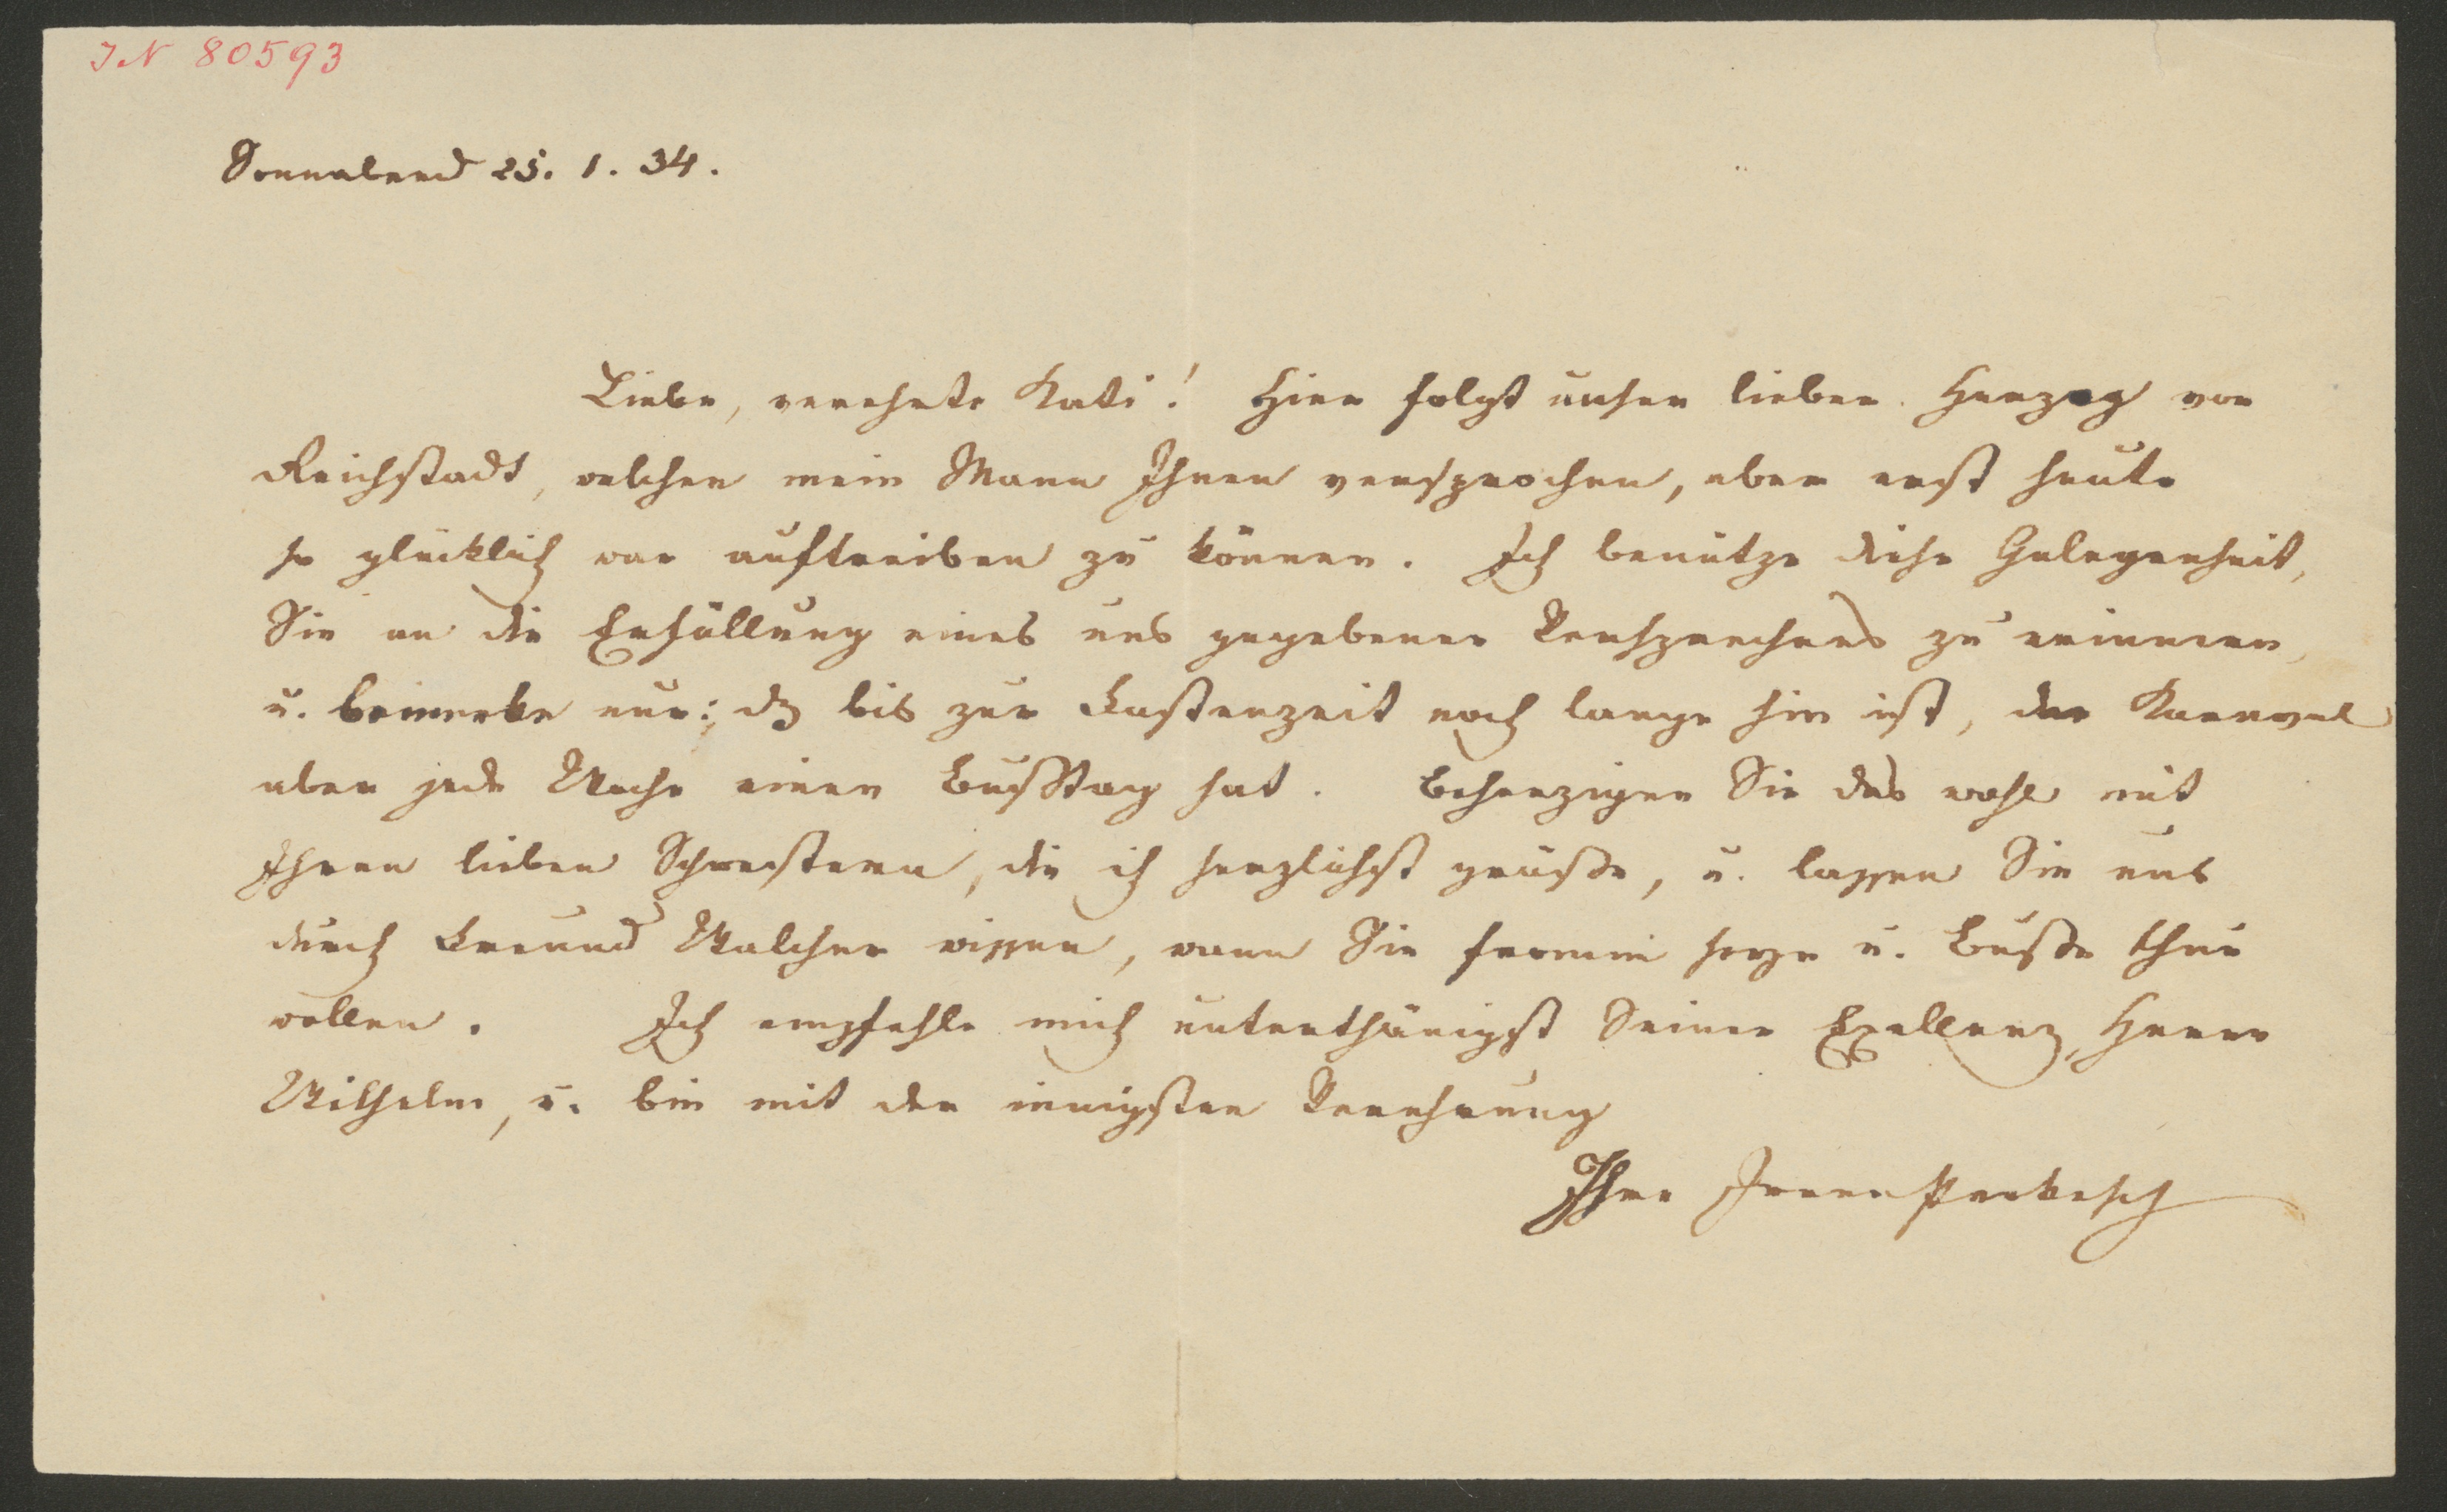 IN 80593
Sonnabend 25. 1. 34.
Liebe, verehrte Kati! Hier folgt unser lieber Herzog von
Reichstadt, welchen mein Mann Ihnen versprochen, aber erst heute
so glücklich war auftreiben zu können. Ich benütze diese Gelegenheit,
Sie an die Erfüllung eines uns gegebenen Versprechens zu erinnern,
u. bemerke nur: dß bis zur Fastenzeit noch lange hin ist, der Karneval
aber jede Woche einen Bußtag hat. Beherzigen Sie das wohl mit
Ihren lieben Schwestern, die ich herzlichst grüße, u. lassen Sie uns
durch Freund Walcher wissen, wann Sie fromm seyn u. Buße thun
wollen. Ich empfehle mich unterthänigst Seiner Exellenz, Herrn
Wilhelm, u. bin mit der innigsten Verehrung
Ihre Irene Prokesch